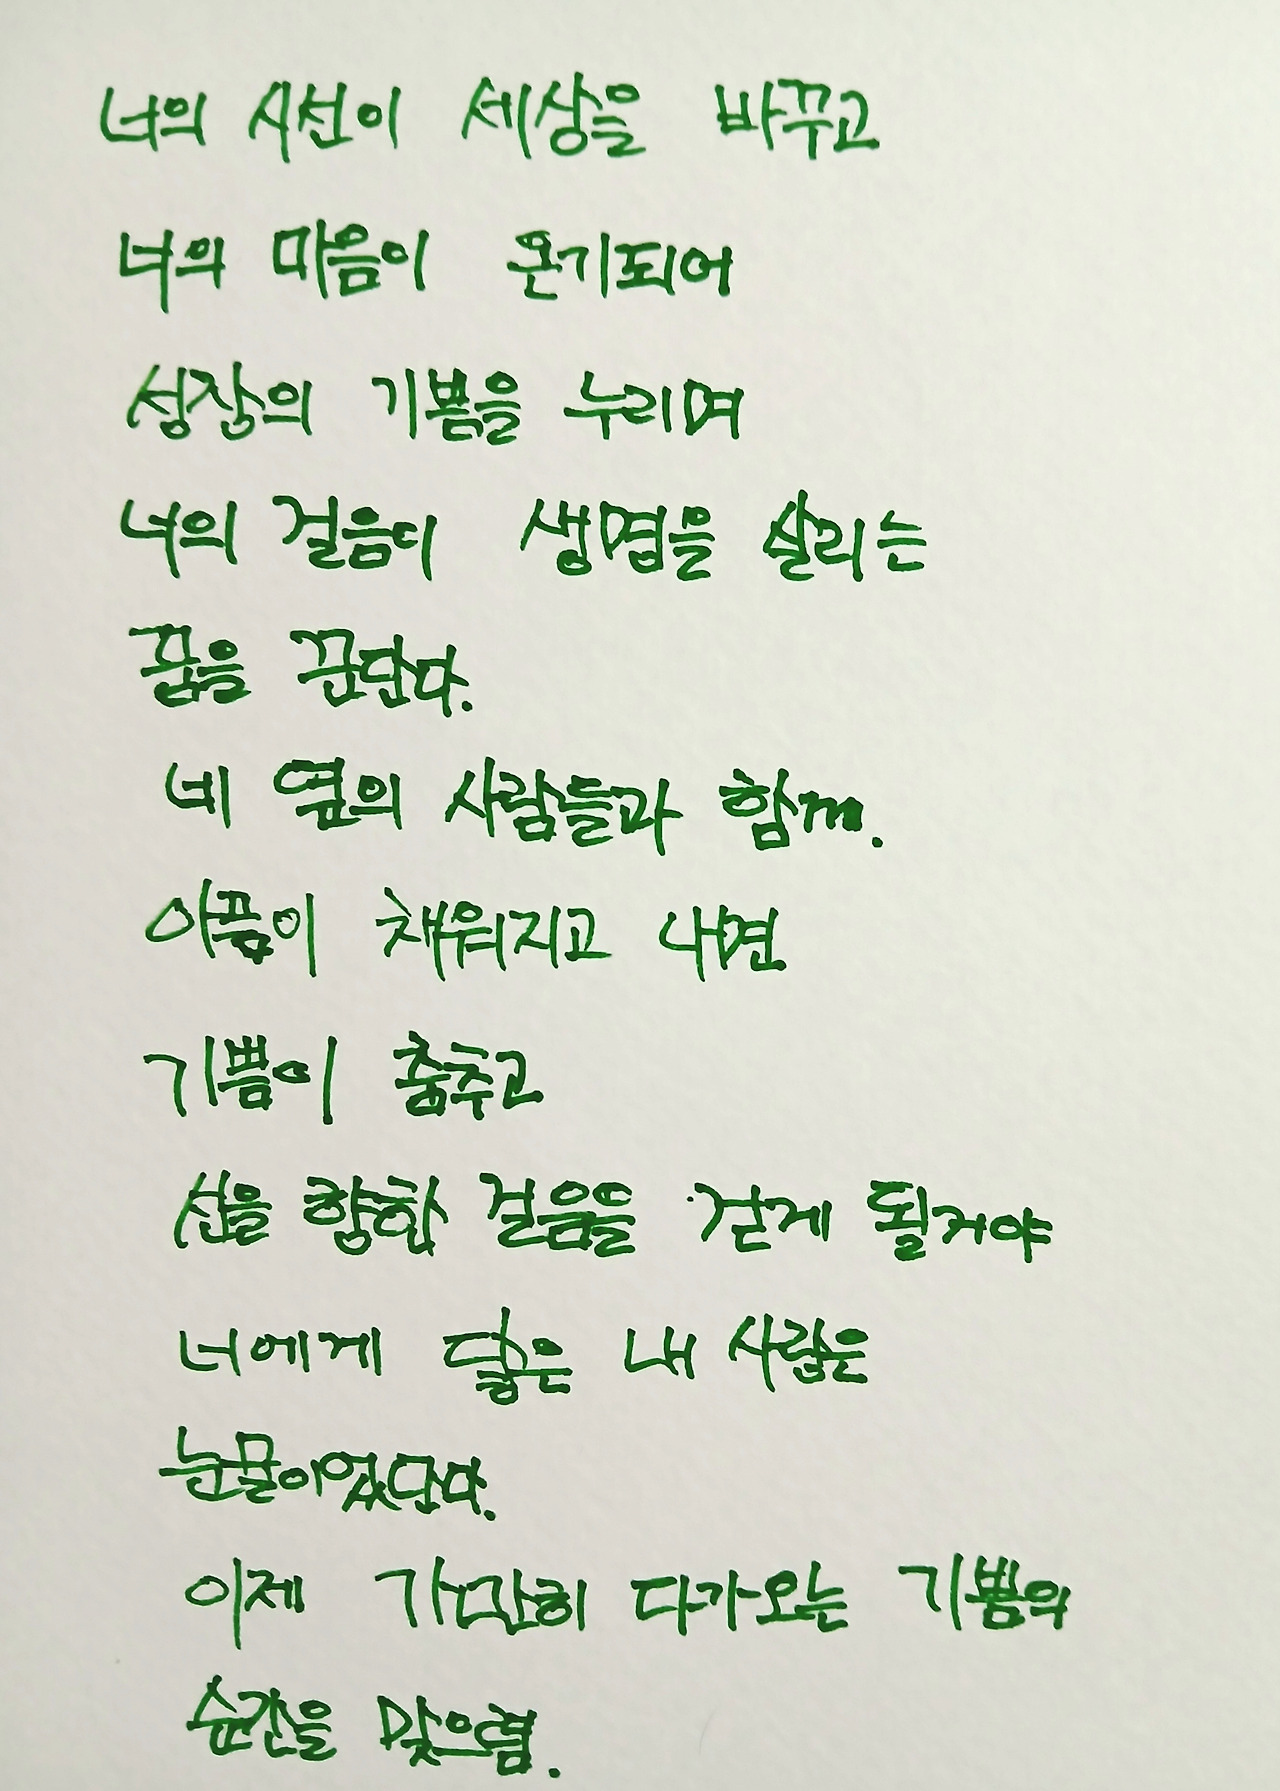 너의 시선이 세상을 바꾸고
너의 마음이 온기되어
성장의 기쁨을 누리며
너의 걸음이 생명을 살리는
꿈을 꾼단다.
네 옆의 사람들과 함께.
아픔이 채워지고 나면
기쁨이 춤추고
선을 향한 걸음을 걷게 될거야
너에게 닳은 내 사람은
눈물이었단다.
이제 가만히 다가오는 기쁨의
순간을 맞으렴.